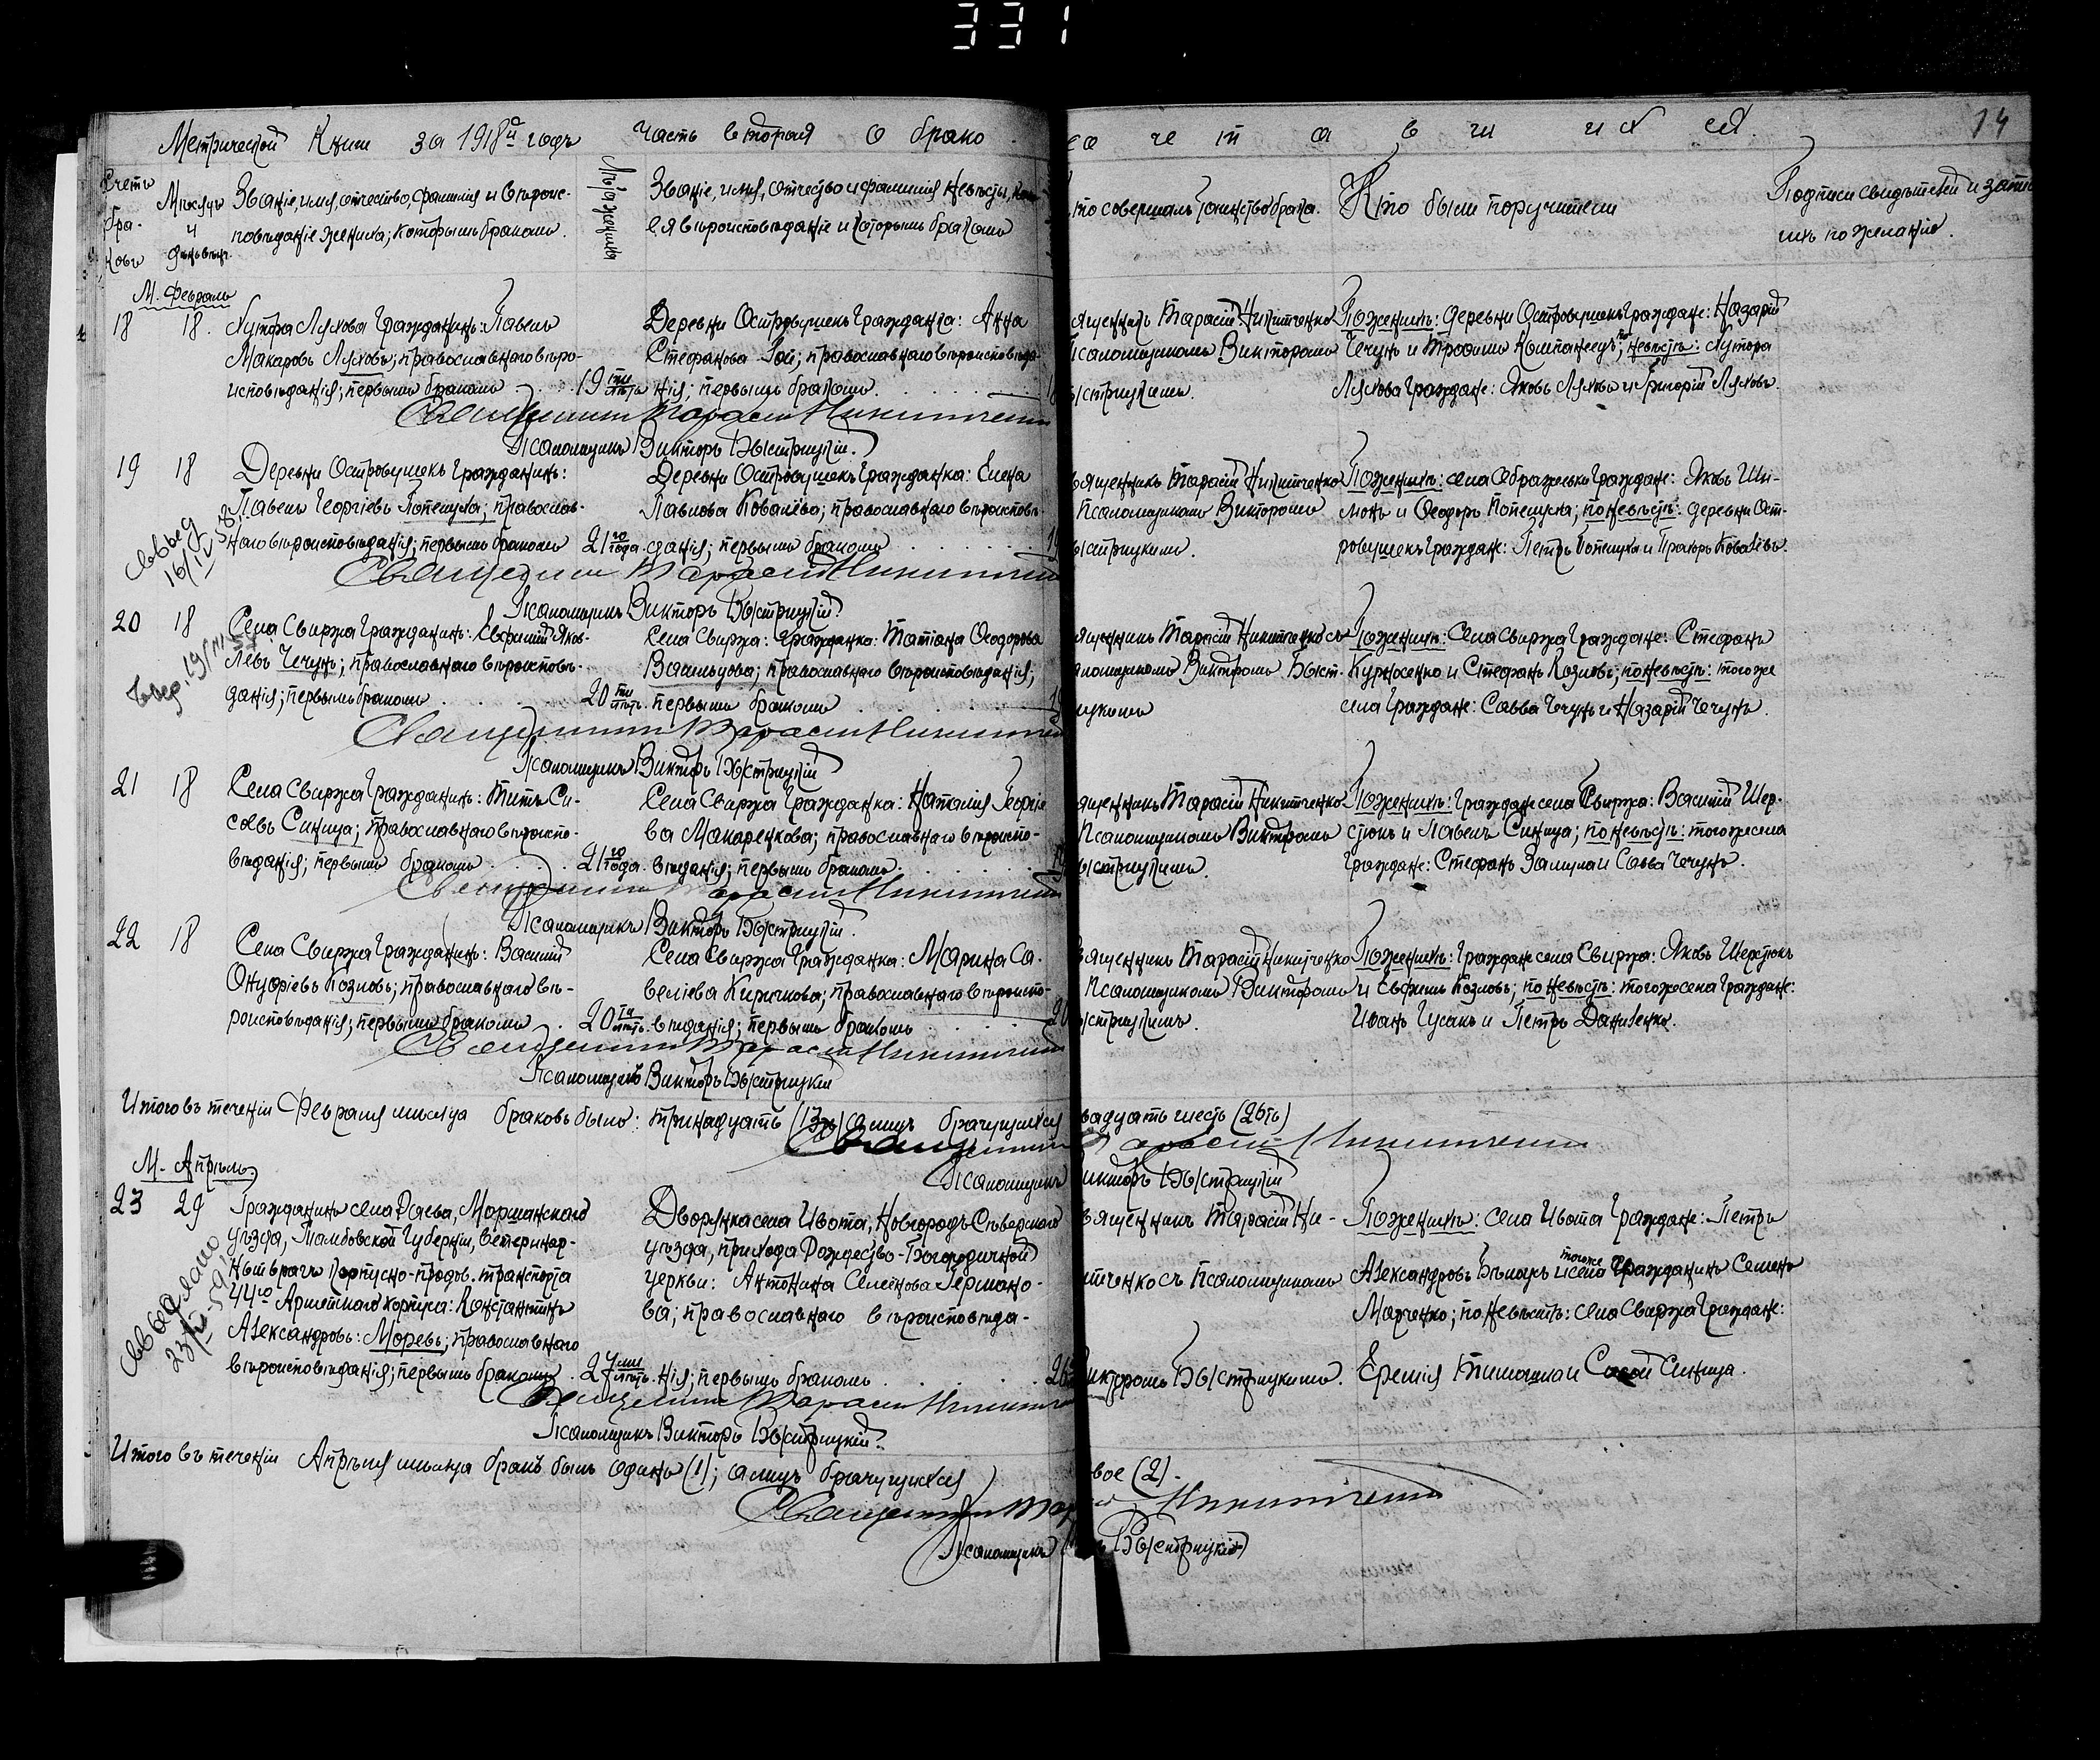 331
Метрической Книги за 1918й годъ часть вторая о брако
со че т а в ши и х ся. 14
Счетъ бра-ковъ
Мѣсяцъ и день вѣнч.
Званіе, имя, отчество, фамилія и вѣроис-
повѣданіе жениха; которымъ бракомъ.
Лѣта жениха
Званіе, имя, отчество и фамилія невѣсты,
ея вѣроисповѣданіе и которымъ бракомъ
то совершалъ таинство брака.
Кто были поручители
Подписи свидѣтелей и запи
ихъ по желанію.
М. Февраль
18 18. Хутора Лухова Гражданинъ: Павелъ
Макаровъ Луховъ; православнаго вѣро-
исповѣданія; первымъ бракомъ
19ти лѣтъ
Деревни Островушекъ Гражданка: Анна
Стефанова Зой; православнаго вѣроисповѣда-
нія; первымъ бракомъ.
ященникъ Тарасій Никитченко
Псаломщикомъ Викторомъ
ыстрицкимъ.
По женихѣ: деревни Островушекъ Граждане: Назарій
Чечунъ и Трофимъ Компанеецъ; по невѣстѣ: Хутора
Лухова Граждане: Яковъ Луховъ и Григорій Луховъ.
Священникъ Тарасій Никитченко
Псаломщикъ Викторъ Быстрицкій.
19 18 Деревни Островушекъ Гражданинъ:
Павелъ Георгіевъ Попетуха; православ-
наго вѣроисповѣданія; первымъ бракомъ
21го года.
Деревни Островушекъ Гражданка: Елена
Павлова Ковалёва; православнаго вѣроисповѣ-
данія; первымъ бракомъ
вященникъ Тарасій Никитченко
Псаломщикомъ Викторомъ
ыстрицкимъ.
По женихѣ: села Ображеевки Граждане: Яковъ Ши-
монъ и Феодоръ Попетуха; по невѣстѣ: деревни Ост-
ровушекъ Граждане: Петръ Попетуха и Прохоръ Ковалёвъ.
16/IV
Священникъ Тарасій Никитченко
Псаломщикъ Викторъ Быстрицкій.
20 18 Села Свиржа Гражданинъ: Евфимій Яков-
левъ Чечунъ; православнаго вѣроисповѣ-
данія; первымъ бракомъ
20ти лѣтъ.
Села Свиржа: Гражданка: Татіана Феодорова
Васильцова; православнаго вѣроисповѣданія;
первымъ бракомъ
ященникъ Тарасій Никитченко съ
аломщикомъ Викторомъ Быст-
ицкимъ
По женихѣ: Села Свиржа Граждане: Стефанъ
Курженко и Стефанъ Козловъ; по невѣстѣ: того же
села Граждане: Савва Чечунъ и Назарій Чечунъ.
Священникъ Тарасій Никитченко
Псаломщикъ Викторъ Быстрицкій
21 18 Села Свиржа Гражданинъ: Титъ Си-
совъ Синица; православнаго вѣроиспо-
вѣданія; первымъ бракомъ
21го года.
Села Свиржа Гражданка: Наталія Георгіе
ва Макаренкова; православнаго вѣроиспо-
вѣданія; первымъ бракомъ.
ященникъ Тарасій Никитченко
Псаломщикомъ Викторомъ
ыстрицкимъ.
По женихѣ: Граждане села Свиржа: Василій Шер-
стюкъ и Павелъ Синица; по невѣстѣ: того же села
Граждане: Стефанъ Залуха и Савва Чечунъ.
Священникъ Тарасій Никитченко
Псаломщикъ Викторъ Быстрицкій.
22 18 Села Свиржа Гражданинъ: Василій
Онуфріевъ Козловъ; православнаго вѣ-
роисповѣданія; первымъ бракомъ
20ти лѣтъ.
Села Свиржа Гражданка: Марина Са-
веліева Киричкова; православнаго вѣроиспо-
вѣданія; первымъ бракомъ
20
вященникъ Тарасій Никитченко
Псаломщикомъ Викторомъ
ыстрицкимъ.
По женихѣ: Граждане села Свиржа: Яковъ Шерстюкъ
и Евфимъ Козловъ; по невѣстѣ: того же села Граждане:
Иванъ Гусакъ и Петръ Даниленко.
Священникъ Тарасій Никитченко
Псаломщикъ Викторъ Быстрицкій
Итого въ теченіи Февраля мѣсяца браковъ было: тринадцать (13ть) а лицъ брачущихся
вадцать шесть (26ть)
Священникъ Тарасій Никитченко
Псаломщикъ Викторъ Быстрицкій
М. Апрѣль
23 29 Гражданинъ села Раева, Моршанскаго
уѣзда, Тамбовской Губерніи, ветеринар-
ный врачъ корпусно-продов. транспорта
44го Армейскаго корпуса: Константинъ
Александровъ: Моревъ; православнаго
вѣроисповѣданія; первымъ бракомъ.
27ми лѣтъ.
Дворянка села Ивота, Новгородъ-Сѣверскаго
уѣзда, прихода Рождество-Богородичной
церкви: Антонина Семенова Германо-
ва; православнаго вѣроисповѣда-
нія; первымъ бракомъ
26
вященникъ Тарасій Ни-
итченко съ Псаломщикомъ
икторомъ Быстрицкимъ.
По женихѣ: села Ивота Граждане: Петръ
Александровъ Бѣлецъ и того же села Гражданинъ Семенъ
Марченко; по невѣстѣ: села Свиржа Граждане:
Еремія Тимошка и Сисой Синица.
Священникъ Тарасій Никитченко
Псаломщикъ Викторъ Быстрицкій.
Итого въ теченіи Апрѣля мѣсяца бракъ былъ одинъ (1); а лицъ брачущихся
вое (2).
Священникъ Тар Никитченко
Псаломщикъ ъ Быстрицкій